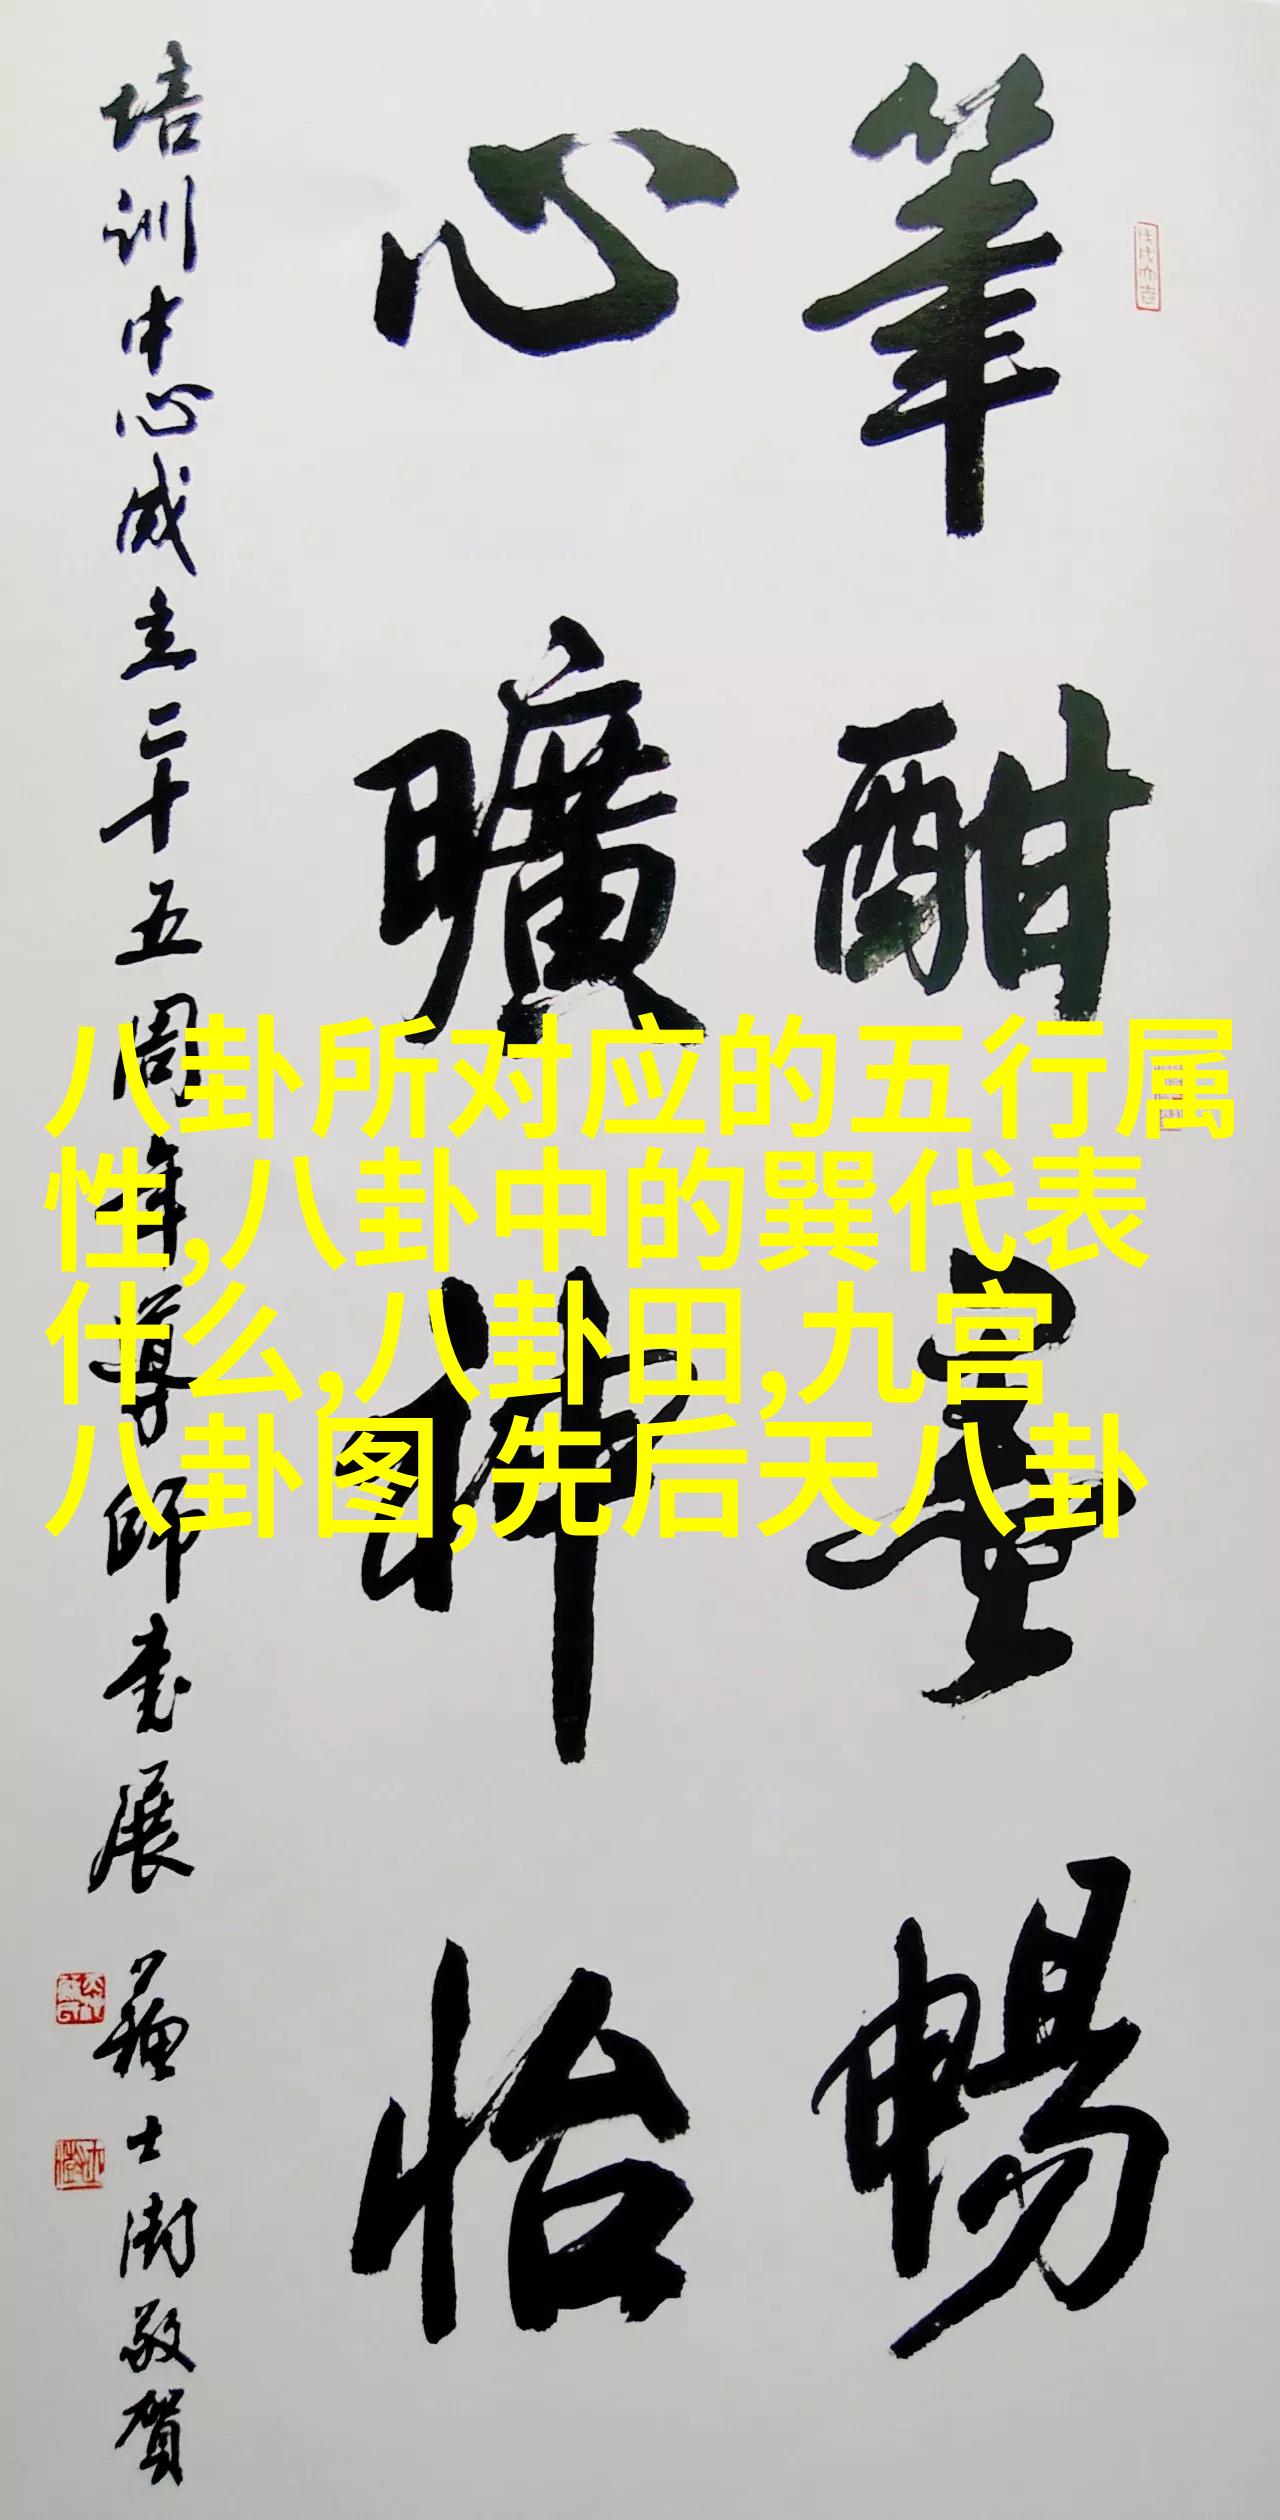 筆酣墨暢
心曠神怡
培训中心成立二十五周年導師書展
蘇士澍敬賀
八卦所对应的五行属
性,八卦中的巽代表
什么,八卦田,九宫
八卦图,先后天八卦